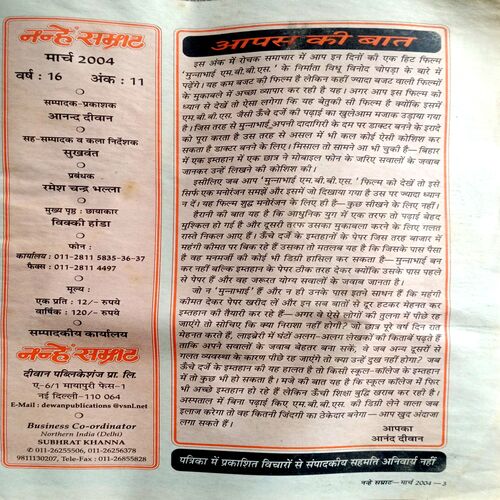 नन्हें सम्राट
मार्च 2004
वर्ष : 16 अंक : 11
सम्पादक-प्रकाशक
आनन्द दीवान
सह-सम्पादक व कला निर्देशक
सुखवंत
प्रबंधक
रमेश चन्द्र भल्ला
मुख्य पृष्ठ : छायाकार
विक्की हांडा
फोन :
कार्यालय : 011-2811 5835-36-37
फैक्स : 011-2811 4497
मूल्य :
एक प्रति : 12/– रुपये
वार्षिक : 120/– रुपये
सम्पादकीय कार्यालय
नन्हें सम्राट
दीवान पब्लिकेशंज प्रा. लि.
ए-6/1 मायापुरी फेस-1
नई दिल्ली—110 064
E-Mail : dewanpublications @vsnl.net
Business Co-ordinator
Northern India (Delhi)
SUBHRAT KHANNA
✆ 011-26255506, 011-26256378
9811130207, Tele-Fax : 011-26855828
आपस की बात
इस अंक में रोचक समाचार में आप इन दिनों की एक हिट फिल्म
'मुन्नाभाई एम.बी.बी.एस.' के निर्माता विधु विनोद चोपड़ा के बारे में
पढ़ेंगे। यह कम बजट की फिल्म है लेकिन कहीं ज्यादा बजट वाली फिल्मों
के मुकाबले में अच्छा व्यापार कर रही है यह। अगर आप इस फिल्म को
ध्यान से देखें तो ऐसा लगेगा कि यह बेतुकी सी फिल्म है क्योंकि इसमें
एम.बी.बी.एस. जैसी ऊँचे दर्जे की पढ़ाई का खुलेआम मजाक उड़ाया गया
है। जिस तरह से मुन्नाभाई अपनी दादागिरी के दम पर डाक्टर बनने के इरादे
को पूरा करता है उस तरह से असल में भी कल कोई ऐसी कोशिश कर
सकता है डाक्टर बनने के लिए। मिसाल तो सामने आ भी चुकी है—बिहार
में एक इम्तहान में एक छात्र ने मोबाइल फोन के जरिए सवालों के जवाब
जानकर उन्हें लिखने की कोशिश की।
इसीलिए जब आप 'मुन्नाभाई एम.बी.बी.एस.' फिल्म को देखें तो इसे
सिर्फ एक मनोरंजन समझें और इसमें जो दिखाया गया है उस पर ज्यादा ध्यान
न दें। यह फिल्म शुद्ध मनोरंजन के लिए ही है—कुछ सीखने के लिए नहीं।
हैरानी की बात यह है कि आधुनिक युग में एक तरफ तो पढ़ाई बेहद
मुश्किल हो गई है और दूसरी तरफ उसका मुकाबला करने के लिए गलत
रास्ते निकल आए हैं। ऊँचे दर्जे के इम्तहानों के पेपर जिस तरह बाजार में
महंगी कीमत पर बिक रहे हैं उसका तो मतलब यह है कि जिसके पास पैसा
है वह मनमर्जी की कोई भी डिग्री हासिल कर सकता है—मुन्नाभाई बन
कर नहीं बल्कि इम्तहान के पेपर ठीक तरह देकर क्योंकि उसके पास पहले
से पेपर हैं और वह जरूरत योग्य सवालों के जवाब जानता है।
जो न 'मुन्नाभाई' हैं और न ही उनके पास इतने साधन हैं कि महंगी
कीमत देकर पेपर खरीद लें और इन सब बातों से दूर हटकर मेहनत कर
इम्तहान की तैयारी कर रहे हैं—अगर वे ऐसे लोगों की तुलना में पीछे रह
जाएंगे तो सोचिए कि क्या निराशा नहीं होगी? जो छात्र पूरे वर्ष दिन रात
मेहनत करते हैं, लाइब्रेरी में घंटों अलग-अलग लेखकों की किताबें पढ़ते हैं
ताकि अपने सवालों के जवाब बेहतर बना सकें, वे जब अन्य दूसरों से
गलत व्यवस्था के कारण पीछे रह जाएंगे तो क्या उन्हें दुख नहीं होगा? जब
ऊँचे दर्जे की इम्तहान की यह हालत है तो किसी स्कूल-कॉलेज के इम्तहान
में तो कुछ भी हो सकता है। मजे की बात यह है कि स्कूल कॉलेज में फिर
भी अच्छे इम्तहान हो रहे हैं लेकिन ऊँची शिक्षा वृद्धि खराब कर रही है।
अस्पताल में बिना पढ़ाई किए एम.बी.बी.एस. की डिग्री लेने वाला जब
इलाज करेगा तो वह कितनी जिंदगी का ठेकेदार बनेगा— आप खुद अंदाजा
लगा सकते हैं।
आपका
आनंद दीवान
पत्रिका में प्रकाशित विचारों से संपादकीय सहमति अनिवार्य नहीं
नन्हे सम्राट—मार्च 2004—3